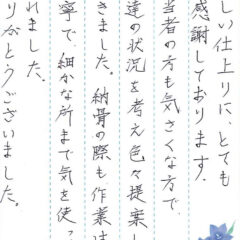 しい仕上りに、とても
感謝しております。
当者の方も気さくな方で、
達の状況を考え色々提案し
きました。納骨の際も作業は
寧で、細かな所まで気を使っ
れました。
りがとうございました。